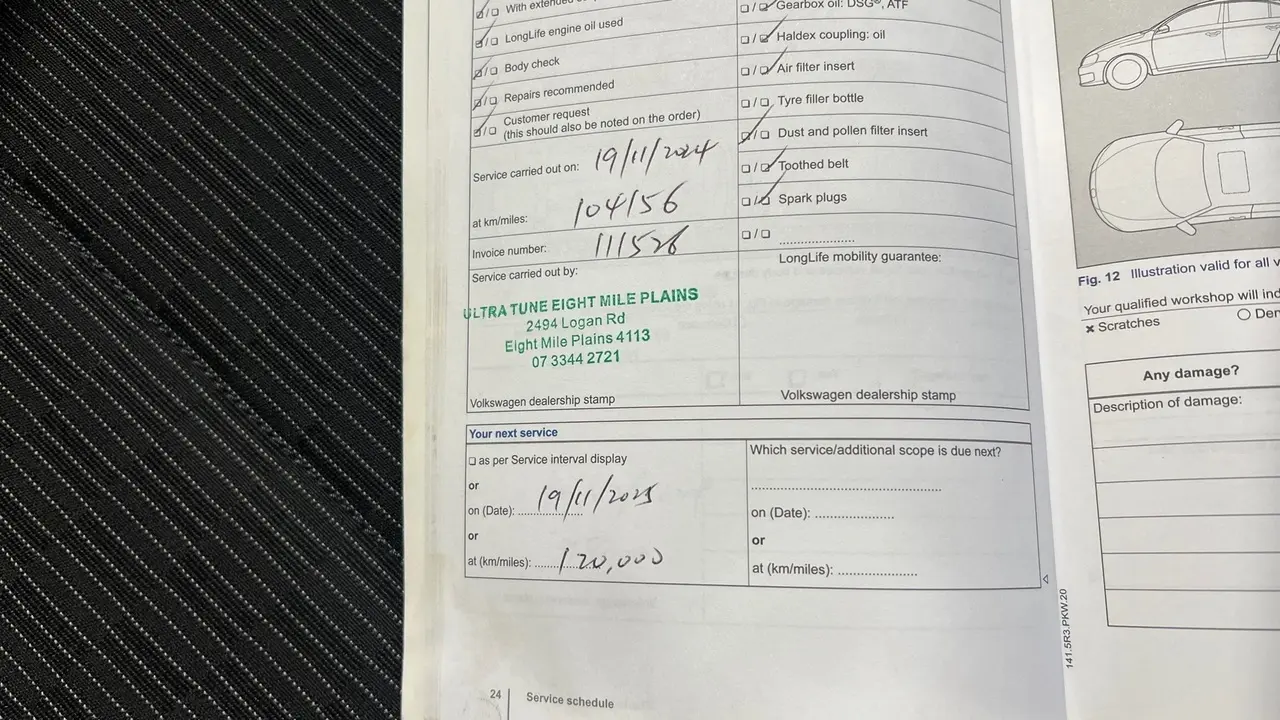 ☑ / ☐ With extended
☑ / ☐ LongLife engine oil used
☑ / ☐ Body check
☑ / ☐ Repairs recommended
☑ / ☐ Customer request
(this should also be noted on the order)
Service carried out on: 19/11/2024
at km/miles: 104156
Invoice number: 111526
Service carried out by:
ULTRA TUNE EIGHT MILE PLAINS
2494 Logan Rd
Eight Mile Plains 4113
07 3344 2721
Volkswagen dealership stamp
☐ / ☑ Gearbox oil: DSG®, ATF
☐ / ☑ Haldex coupling: oil
☐ / ☑ Air filter insert
☐ / ☐ Tyre filler bottle
☑ / ☐ Dust and pollen filter insert
☐ / ☑ Toothed belt
☐ / ☑ Spark plugs
☐ / ☐ ......................
LongLife mobility guarantee:
Volkswagen dealership stamp
Your next service
☐ as per Service interval display
or
on (Date): 19/11/2025
or
at (km/miles): 120,000
Which service/additional scope is due next?
......................................................
on (Date): ......................
or
at (km/miles): ......................
24 Service schedule
141.5R3.PKW.20
Fig. 12 Illustration valid for all
Your qualified workshop will
× Scratches
Any damage?
Description of damage: